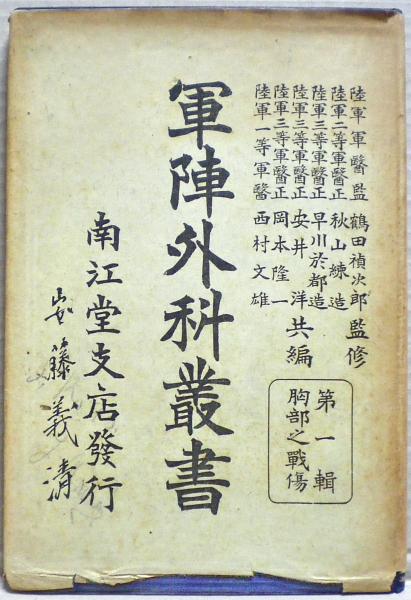 陸軍軍醫監 鶴田禎次郎 監修
陸軍二等軍醫正 秋山練造
陸軍三等軍醫正 早川於都造
陸軍三等軍醫正 安井洋 共編
陸軍三等軍醫正 岡本隆一
陸軍一等軍醫 西村文雄
第一輯
胸部之戰傷
軍陣外科叢書
南江堂支店發行
藤義清